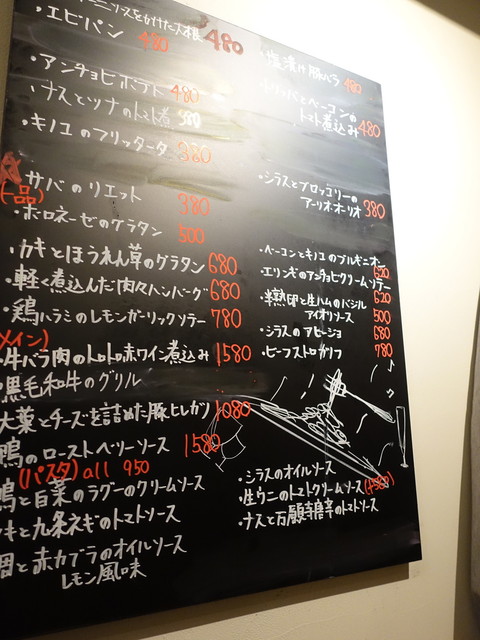 ーニャソースをかけた大根 480
・エビパン 480
・アンチョビポテト 480
ナスとツナのトマト煮 380
・キノコのフリッタータ 380
サバのリエット 380
(一品)
・ボロネーゼのグラタン 500
・カキとほうれん草のグラタン 680
・軽く煮込んだ肉々ハンバーグ 680
・鶏ハラミのレモンガーリックソテー 780
メイン)
・牛バラ肉のトロトロ赤ワイン煮込み 1580
・黒毛和牛のグリル
大葉とチーズを詰めた豚ヒレカツ 1080
鴨のローストベリーソース 1580
(パスタ) all 950
鴨と白菜のラグーのクリームソース
キと九条ネギのトマトソース
と赤カブラのオイルソース
レモン風味
・塩漬け豚バラ 480
とベーコンの
トマト煮込み 480
・シラスとブロッコリーの
アーリオ・オーリオ 380
・ベーコンとキノコのブルギニオン
・エリンギのアンチョビクリームソテー 620
・半熟卵と生ハムのバジル 620
アイオリソース 500
・シラスのアヒージョ 680
・ビーフストロガノフ 780
・シラスのオイルソース
・生ウニのトマトクリームソース (+500)
・ナスと万願寺唐辛のトマトソース